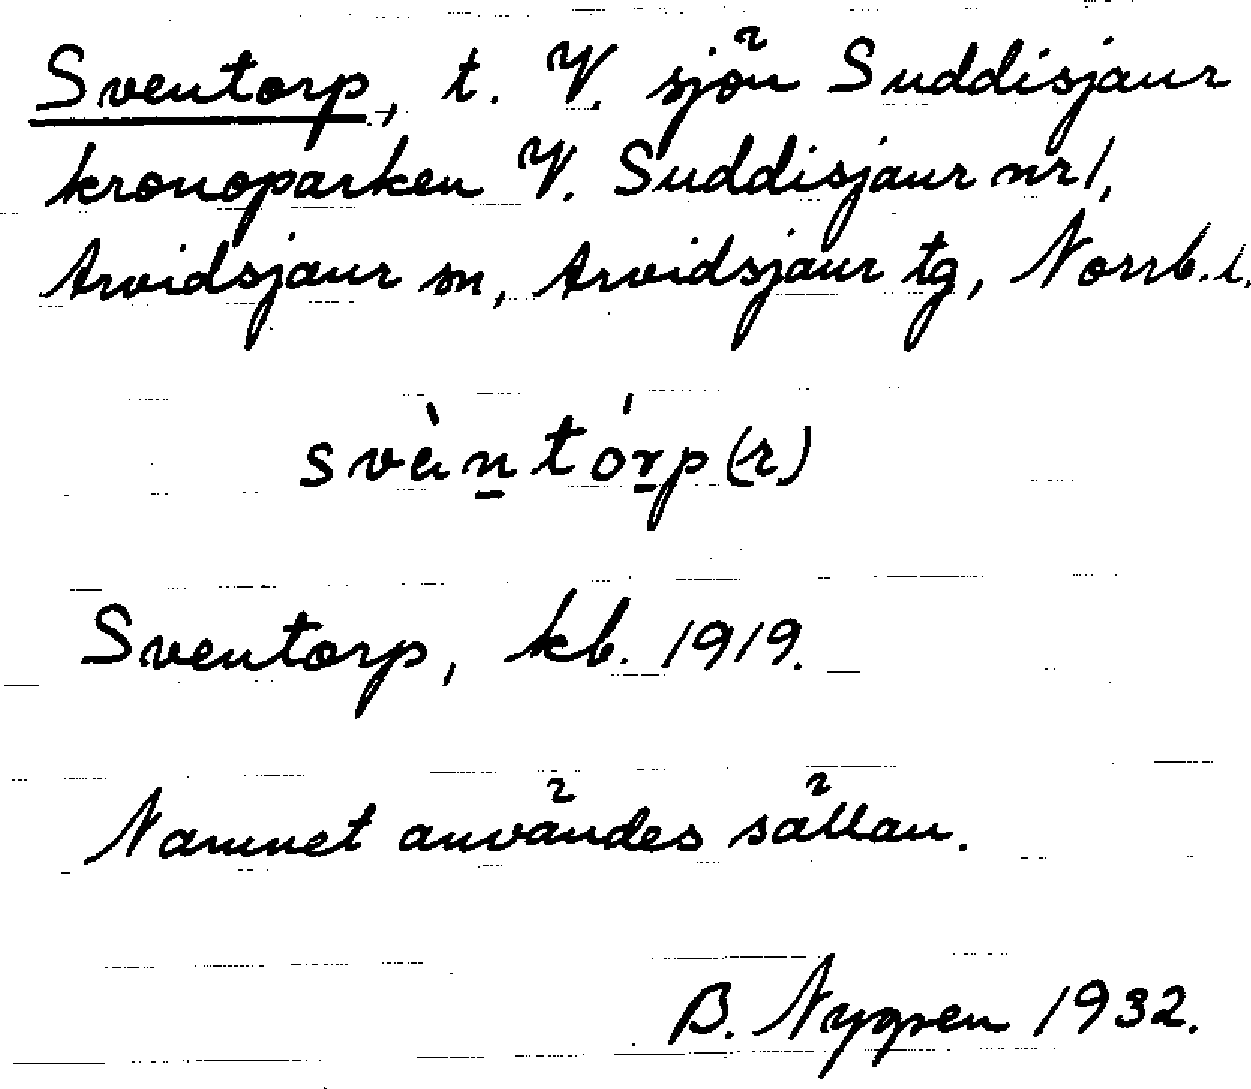 Sventorp, t. V. sjön Suddisjaur
kronoparken V. Suddisjaur nr 1,
Arvidsjaur sn, Arvidsjaur tg, Norrb. l.
svὲn̲tór̲p (-r)
Sventorp, kb. 1919.
Namnet användes sällan.
B. Nygren 1932.